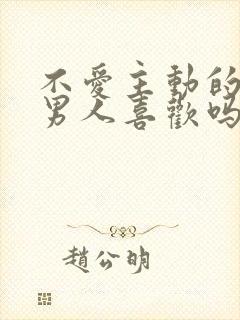 不愛主動的
男人喜歡嗎
趙公明